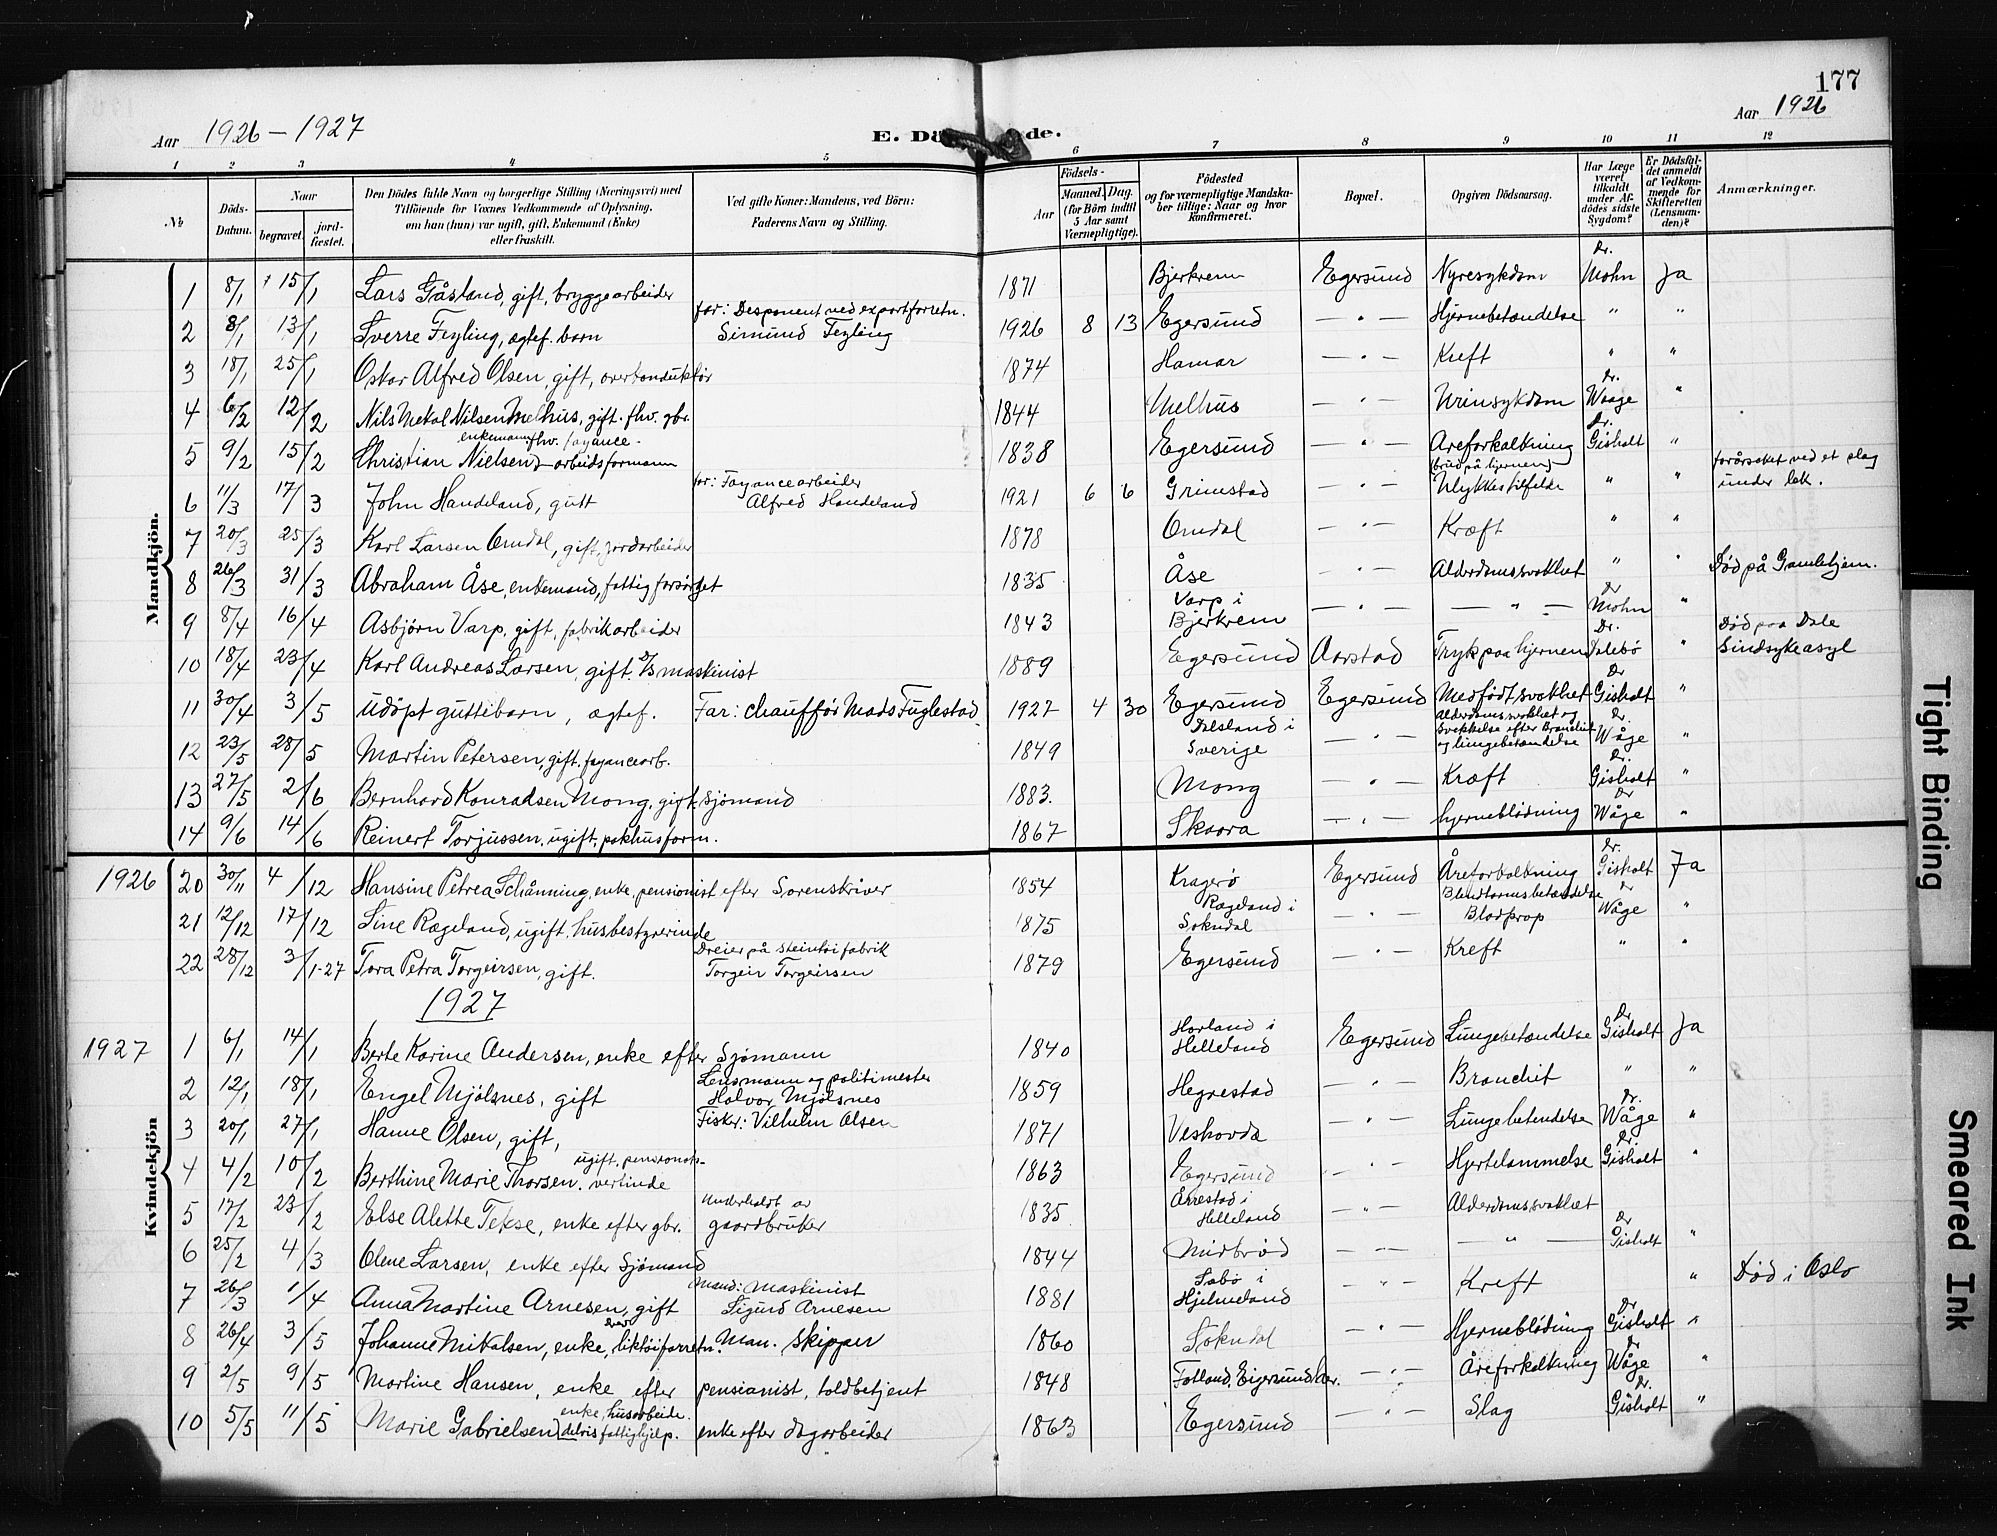 177
Aar 1926 – 1927
E. Dö de.
Aar 1926
1 2 3 4 5 6 7 8 9 10 11 12
№
Döds-Datum.
Naar begravet. jordfæstet.
Den Dödes fulde Navn og borgerlige Stilling (Næringsvei) med Tilföiende for Voxnes Vedkommende af Oplysning, om han (hun) var ugift, gift, Enkemand (Enke) eller fraskilt.
Ved gifte Koner: Mandens, ved Börn: Faderens Navn og Stilling.
Födsels- Aar Maaned. Dag. (for Börn indtil 5 Aar samt Værnepligtige).
Födested og for værnepligtige Mandskaber tillige: Naar og hvor konfirmeret.
Bopæl.
Opgiven Dödsaarsag.
Har Læge været tilkaldt under Afdödes sidste Sygdom?
Er Dödsfaldet anmeldt af Vedkommende for Skifteretten (Lensmanden)?
Anmærkninger.
Mandkjön.
1 8/1 15/1 Lars Gåsland, gift, bryggearbeider 1871 Bjerkreim Egersund Nyresykdom Dr. Mohn Ja
2 8/1 13/1 Sverre Feyling, ægtef. barn far: Desponent ved exportforretn. Simund Feyling 1926 8 13 Egersund — " — Hjernebetændelse " "
3 18/1 25/1 Oskar Alfred Olsen, gift, overkonduktør 1874 Hamar — " — Kreft " "
4 6/2 12/2 Nils Mekal Nilsen Melhus, gift. fhv. gbr. 1844 Melhus — " — Urinsykdom Dr. Waage "
5 9/2 15/2 Christian Nielsen, enkemann fhv. fayance-arbeidsformann 1838 Egersund — " — Areforkalkning Dr. Gisholt "
6 11/3 17/3 John Handeland, gutt far: Fayancearbeider Alfred Handeland 1921 6 6 Grimstad — " — (brud på hjernen) Ulykkestilfelde " " forårsaket ved et slag under lek.
7 20/3 25/3 Karl Larsen Omdal, gift, jordarbeider 1878 Omdal — " — Kræft " "
8 26/3 31/3 Abraham Åse, enkemand, fattigforsørget 1835 Åse — " — Alderdomssvakhet " " Død på Gamlehjem.
9 8/4 16/4 Asbjørn Varp, gift, fabrikarbeider 1843 Varp i Bjerkrem — " — — " — Dr Mohn "
10 18/4 23/4 Karl Andreas Larsen, gift. d/s maskinist 1889 Egersund Aarstad Tryk paa hjernen Dr. Dalebø " Død paa Dale Sindsykeasyl
11 30/4 3/5 Udöpt guttebarn, ægtef. Far: chauffør Mads Fuglestad 1927 4 30 Egersund Egersund Medfødt svakhet Dr Gisholt "
12 23/5 28/5 Martin Petersen, gift. fayancearb. 1849 Dalsland i Sverige — " — Alderdomssvakhet og svekkelse efter Bronchit og lungebetændelse Dr. Wåge "
13 27/5 2/6 Bernhard Konradsen Mong, gift. sjömand 1883. Mong — " — Kræft Dr. Gisholt "
14 9/6 14/6 Reinert Torjussen, ugift, pakhusform. 1867 Skaara — " — hjerneblødning Dr Wåge "
1926
20 30/11 4/12 Hansine Petrea Schånning, enke, pensionist efter Sorenskriver 1854 Kragerø Egersund Åreforkalkning Dr. Gisholt Ja
21 12/12 17/12 Sine Rægeland, ugift. husbestyrerinde 1875 Rægeland i Sokndal — " — Blindtarmsbetændelse Blodprop Dr Wåge "
22 28/12 3/1-27 Tora Petra Torgeirsen, gift. Dreier på steintøifabrik Torgeir Torgeirsen 1879 Egersund — " — Kreft " "
1927
Kvindekjön
1927
1 6/1 14/1 Berte Karine Andersen, enke efter Sjømann 1840 Horland i Helleland Egersund Lungebetændelse Dr Gisholt Ja
2 12/1 18/1 Engel Mjølsnes, gift Lensmann og politimester Halvor Mjølsnes 1859 Hegrestad — " — Bronchit " "
3 20/1 27/1 Hanne Olsen, gift, Fisker: Vilhelm Olsen 1871 Veshovda — " — Lungebetendelse Dr. Wåge "
4 4/2 10/2 Berthine Marie Thorsen. ugift. pensionats-vertinde 1863 Egersund — " — Hjertelammelse Dr. Gisholt "
5 17/2 23/2 Else Alette Tekse, enke efter gbr. Underholdt av gaardbruker 1835 Årrestad i Helleland — " — Alderdomssvakhet
6 25/2 4/3 Olene Larsen, enke efter Sjømand 1844 Midbrød — " — — " — Dr Gisholt "
7 26/3 1/4 Anna Martine Arnesen, gift Mand: Maskinist Sigurd Arnesen 1881 Sabø i Hjelmeland " Kreft " Død i Oslo
8 26/4 3/5 Johanne Mikalsen, enke, liktøiforretn. Man. skipper 1860 Sokndal — " — Hjerneblødning Dr Gisholt "
9 2/5 9/5 Martine Hansen, enke efter pensianist, toldbetjent 1848 Fotland, Eigersund hr. — " — Åreforkalkning Dr Wåge "
10 5/5 11/5 Marie Gabrielsen, enke, husarbeide. delvis fattighjelp. enke efter dagarbeider 1863 Egersund — " — Slag Dr. Gisholt "
Tight Binding
Smeared Ink